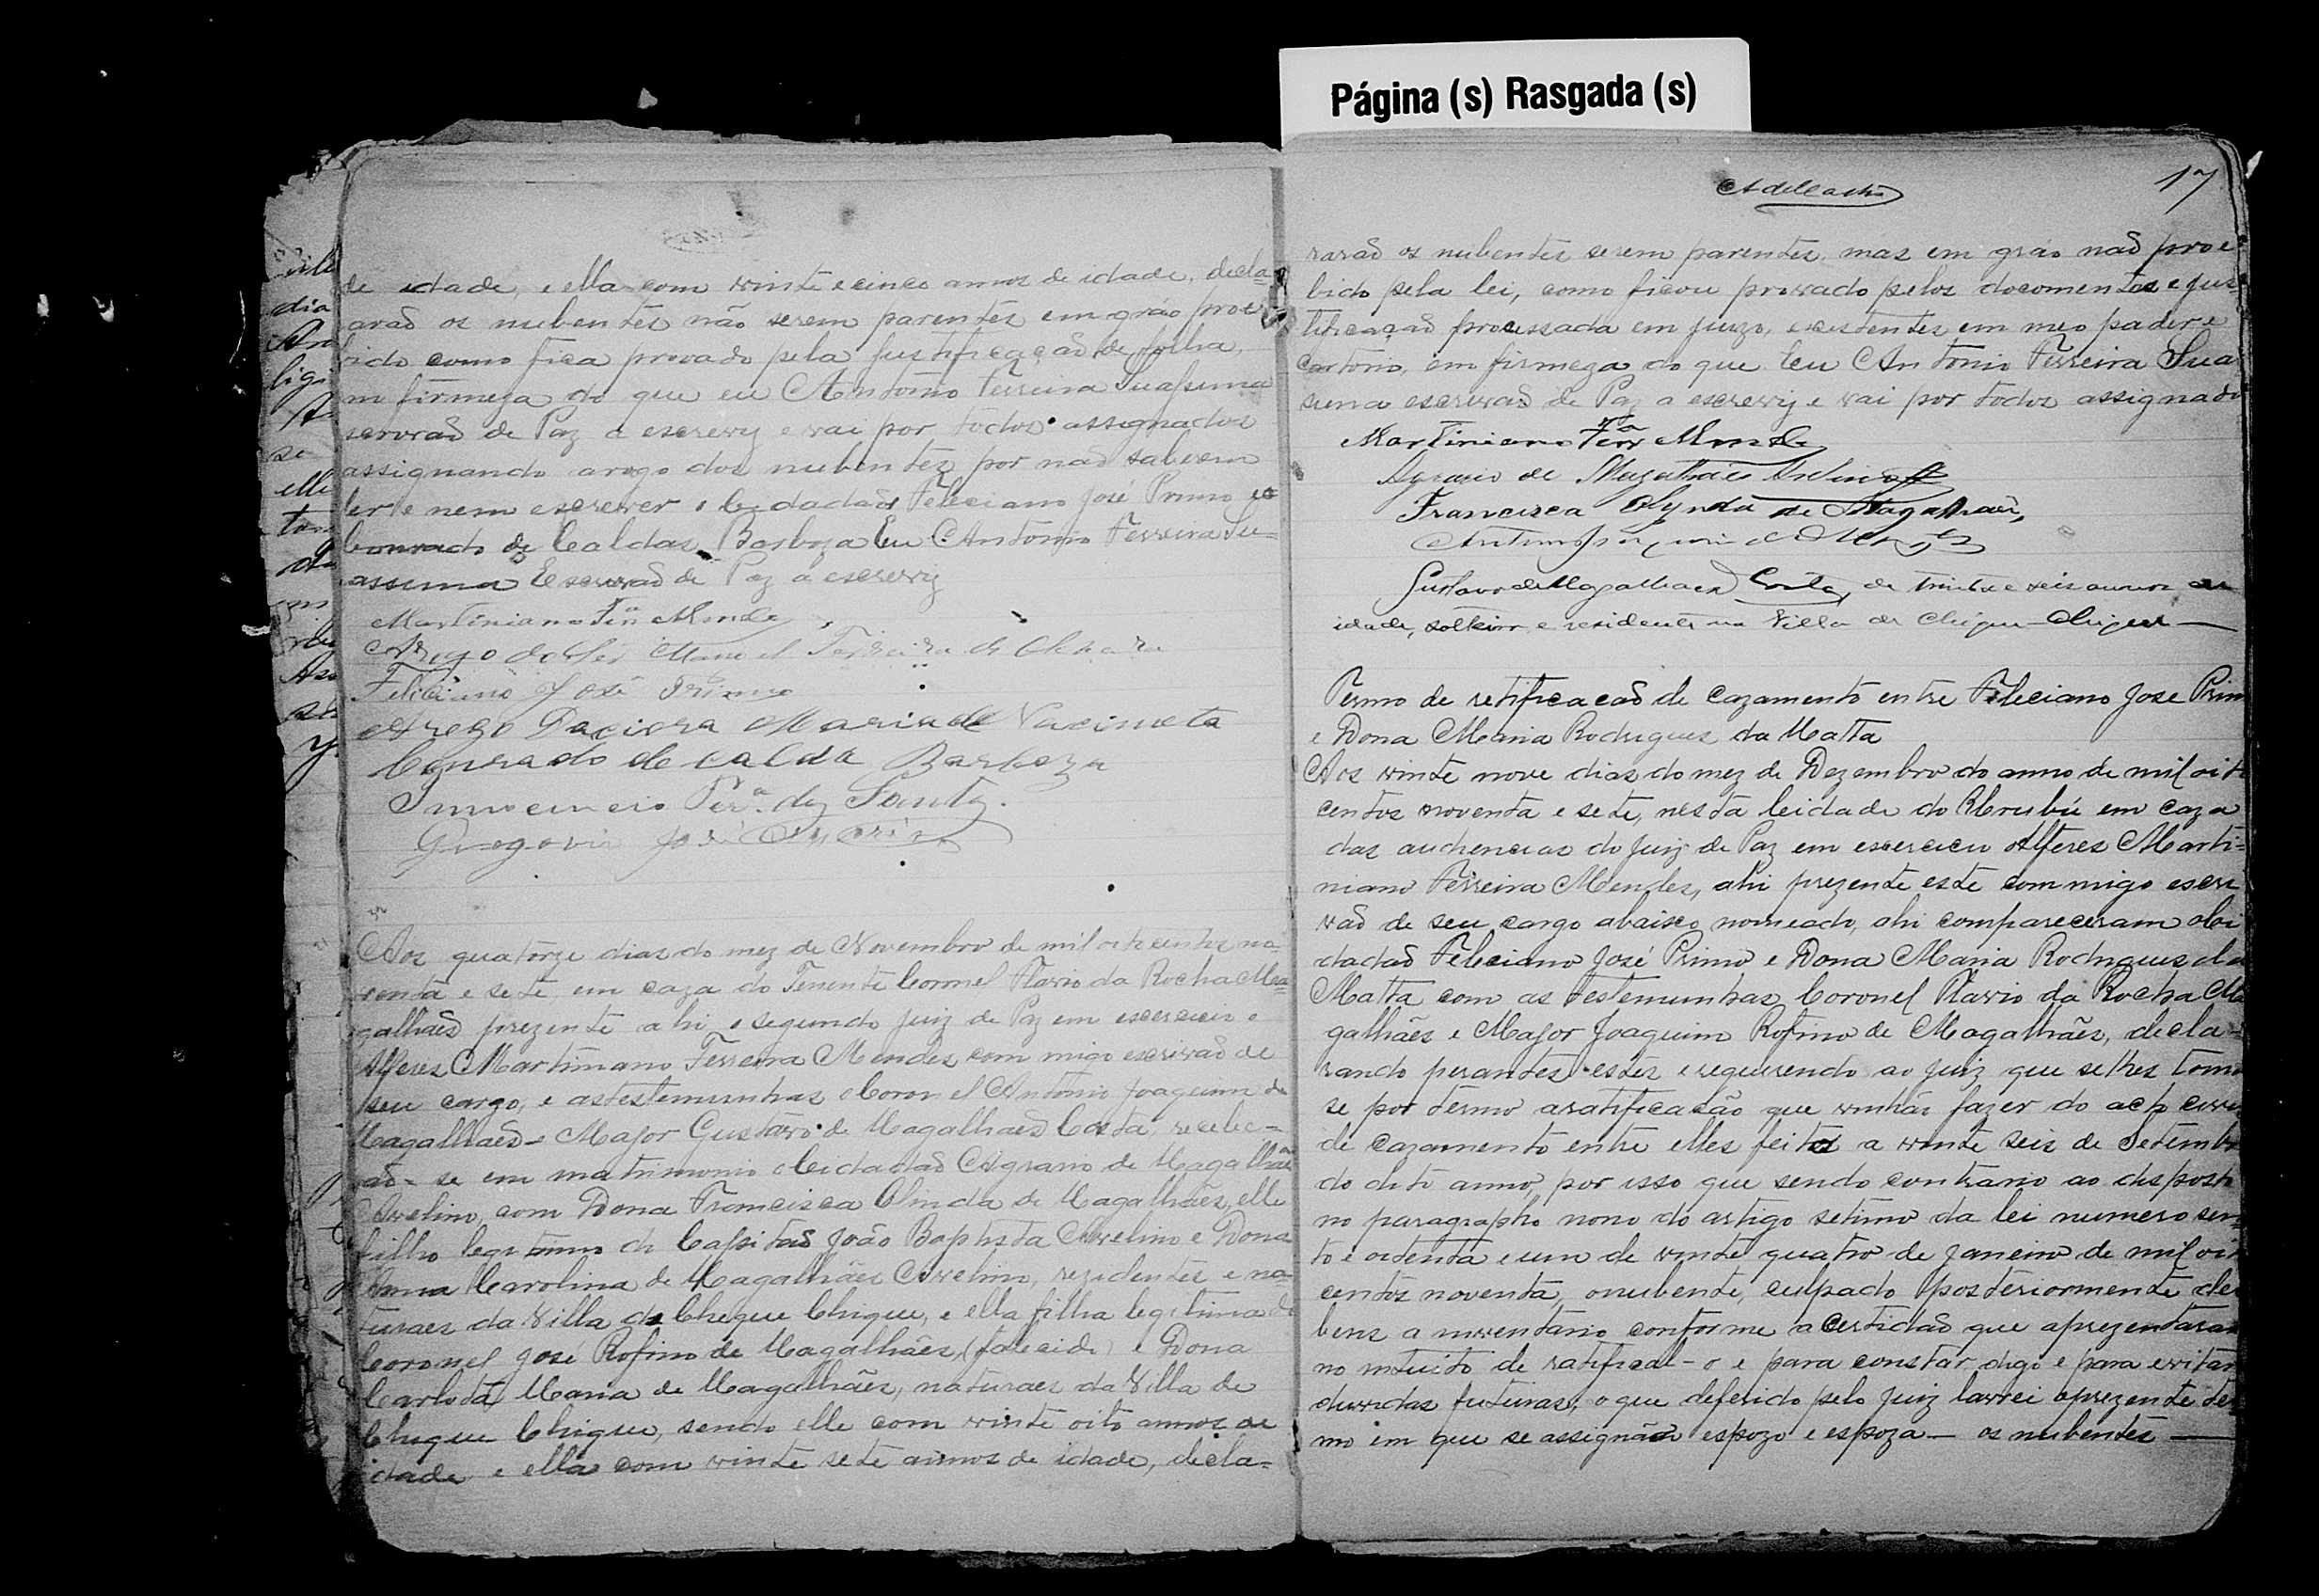 Página (s) Rasgada (s)
de idade, e ella com vinte e cinco annos de idade, decla-
arad os nubentes não serem parentes em gráo proe
bido como fica provado pela justificaçad de folha,
m firmeza do que eu Antonio Ferreira Suassuna
scrivad de Paz a escrevy e vai por todos assignados
assignando arogo dos nubentes por nad saberem
ler e nem escrever o Cidadad Feleciano José Primo e o
Conrado de Caldas Barboza Eu Antonio Ferreira Su=
assuna Escrivad de Paz a escrevy
Martiniano Frª Mendes
Arogo de Manoel Ferreira de
Feliciano José Primo
Arogo Maria de Nacimeta
Conrado de Calda Barboza
Innocencio Perª dos Santos.
Gregorio José
Aos quatorze dias do mez de Novembro de mil oitocentos no
venta e sete, em caza do Tenente Coronel Flavio da Rocha Ma=
galhaẽs prezente ahi o segundo juiz de Paz em escercicio o
Alferes Martiniano Ferreira Mendes com migo escrivad de
seu cargo, e as testemunhas Coronel Antonio Joaquim de
Magalhaẽs e Major Gustavo de Magalhaẽs Costa, recebe-
rad-se em matrimonio o Cidadad Agrario de Magalhães
Avelino, com Dona Francisca Olinda de Magalhães, elle
filho legitimo do Capitad João Baptista Avelino e Dona
Anna Carolina de Magalhães Avelino, rezidentes e na-
turaes da Villa de Chique Chique, e ella filha legitima do
Coronel José Rofino de Magalhães, (falecido) e Dona
Carlota Maria de Magalhães, naturaes da Villa de
Chique Chique, sendo elle com vinte oito annos de
idade e ella com vinte sete annos de idade, decla=
17
rarad os nubentes serem parentes, mas em gráo nad proe
bido pela lei, como ficou provado pelos documentos e jus=
tificaçad processada em juizo, escistentes em meo pader e
cartorio, em firmeza do que Eu Antonio Ferreira Sua
suna escrivad de Paz a escrevy e vai por todos assignado
Martiniano Ferrª Mendes
Agrario de Magalhães Avelino
Francisca Olynda de Magalhaẽs,
Gustavo de Magalhaes Costa, de trinta e seis annos de
idade, solteiro e residente na Villa de Chique-Chique
Termo de retificacad de cazamento entre Feleciano Jose Prim
e Dona Maria Rodrigues da Matta
Aos vinte nove dias do mez de Dezembro do anno de mil oito
centos noventa e sete, nesta Cidade do Urubú em caza
das audiencias do juiz de Paz em escercicio Alferes Marti=
niano Ferreira Mendes, ahi prezente este commigo escri
vad de seu cargo abaisco nomeado, ahi compareceram o Ci
dadad Feleciano José Primo e Dona Maria Rodrigues da
Matta com as testemunhas Coronel Flavio da Rocha Ma
galhães e Major Joaquim Rofino de Magalhães, decla=
rando perantes estes e requerendo ao juiz que se lhes toma
se por termo aratificacão que vinhão fazer do acto civel
de cazamento entre elles feitos a vinte seis de Setembro
do dito anno por isso que sendo contrario ao disposto
no paragrapho nono do artigo setimo da lei numero sen=
to e oitenta e um de vinte quatro de janeiro de mil oito
centos noventa, onubente, culpado posteriormente deu
bens a inventario conforme a Certidad que aprezentaram
no intuito de ratifical-o e para constar digo e para evitar
duvidas futuras, o que deferido pelo juiz lavrei oprezente ter
mo em que se assignão espozo e espoza — os nubentes —